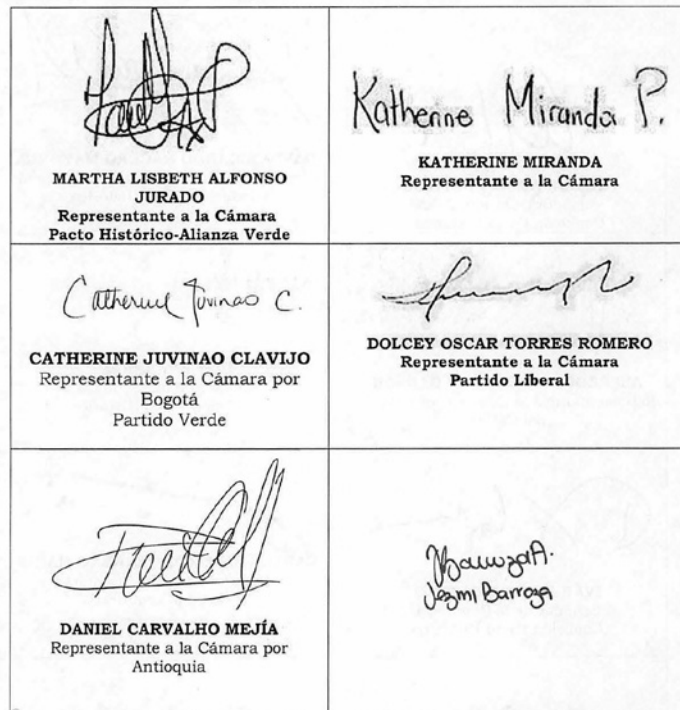 MARTHA LISBETH ALFONSO
JURADO
Representante a la Cámara
Pacto Histórico-Alianza Verde
Katherine Miranda P.
KATHERINE MIRANDA
Representante a la Cámara
Catherine Juvinao C.
CATHERINE JUVINAO CLAVIJO
Representante a la Cámara por
Bogotá
Partido Verde
DOLCEY OSCAR TORRES ROMERO
Representante a la Cámara
Partido Liberal
DANIEL CARVALHO MEJÍA
Representante a la Cámara por
Antioquia
Jezmi Barraza